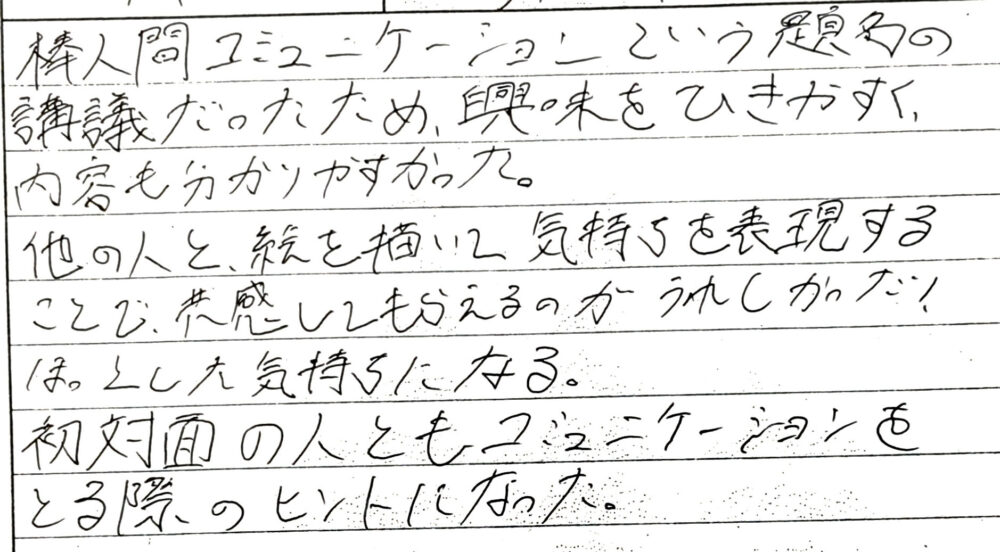 棒人間コミュニケーションという題名の
講議だったため、興味をひきやすく、
内容も分かりやすかった。
他の人と、絵を描いて気持ちを表現する
ことで、共感してもらえるのがうれしかったり
ほっとした気持ちになる。
初対面の人ともコミュニケーションを
とる際のヒントになった。